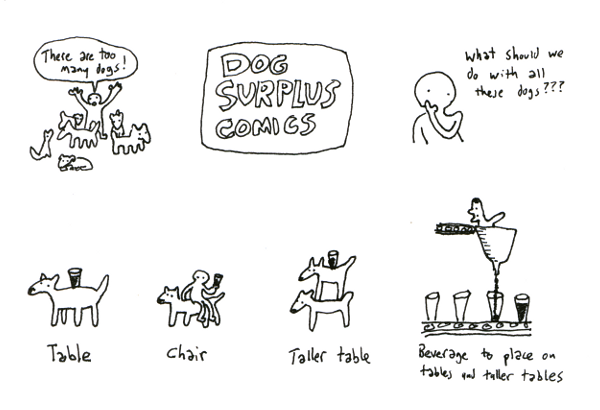 There are too
many dogs!
DOG
SURPLUS
COMICS
What should we
do with all
these dogs???
Table
Chair
Taller table
Beverage to place on
tables and taller tables